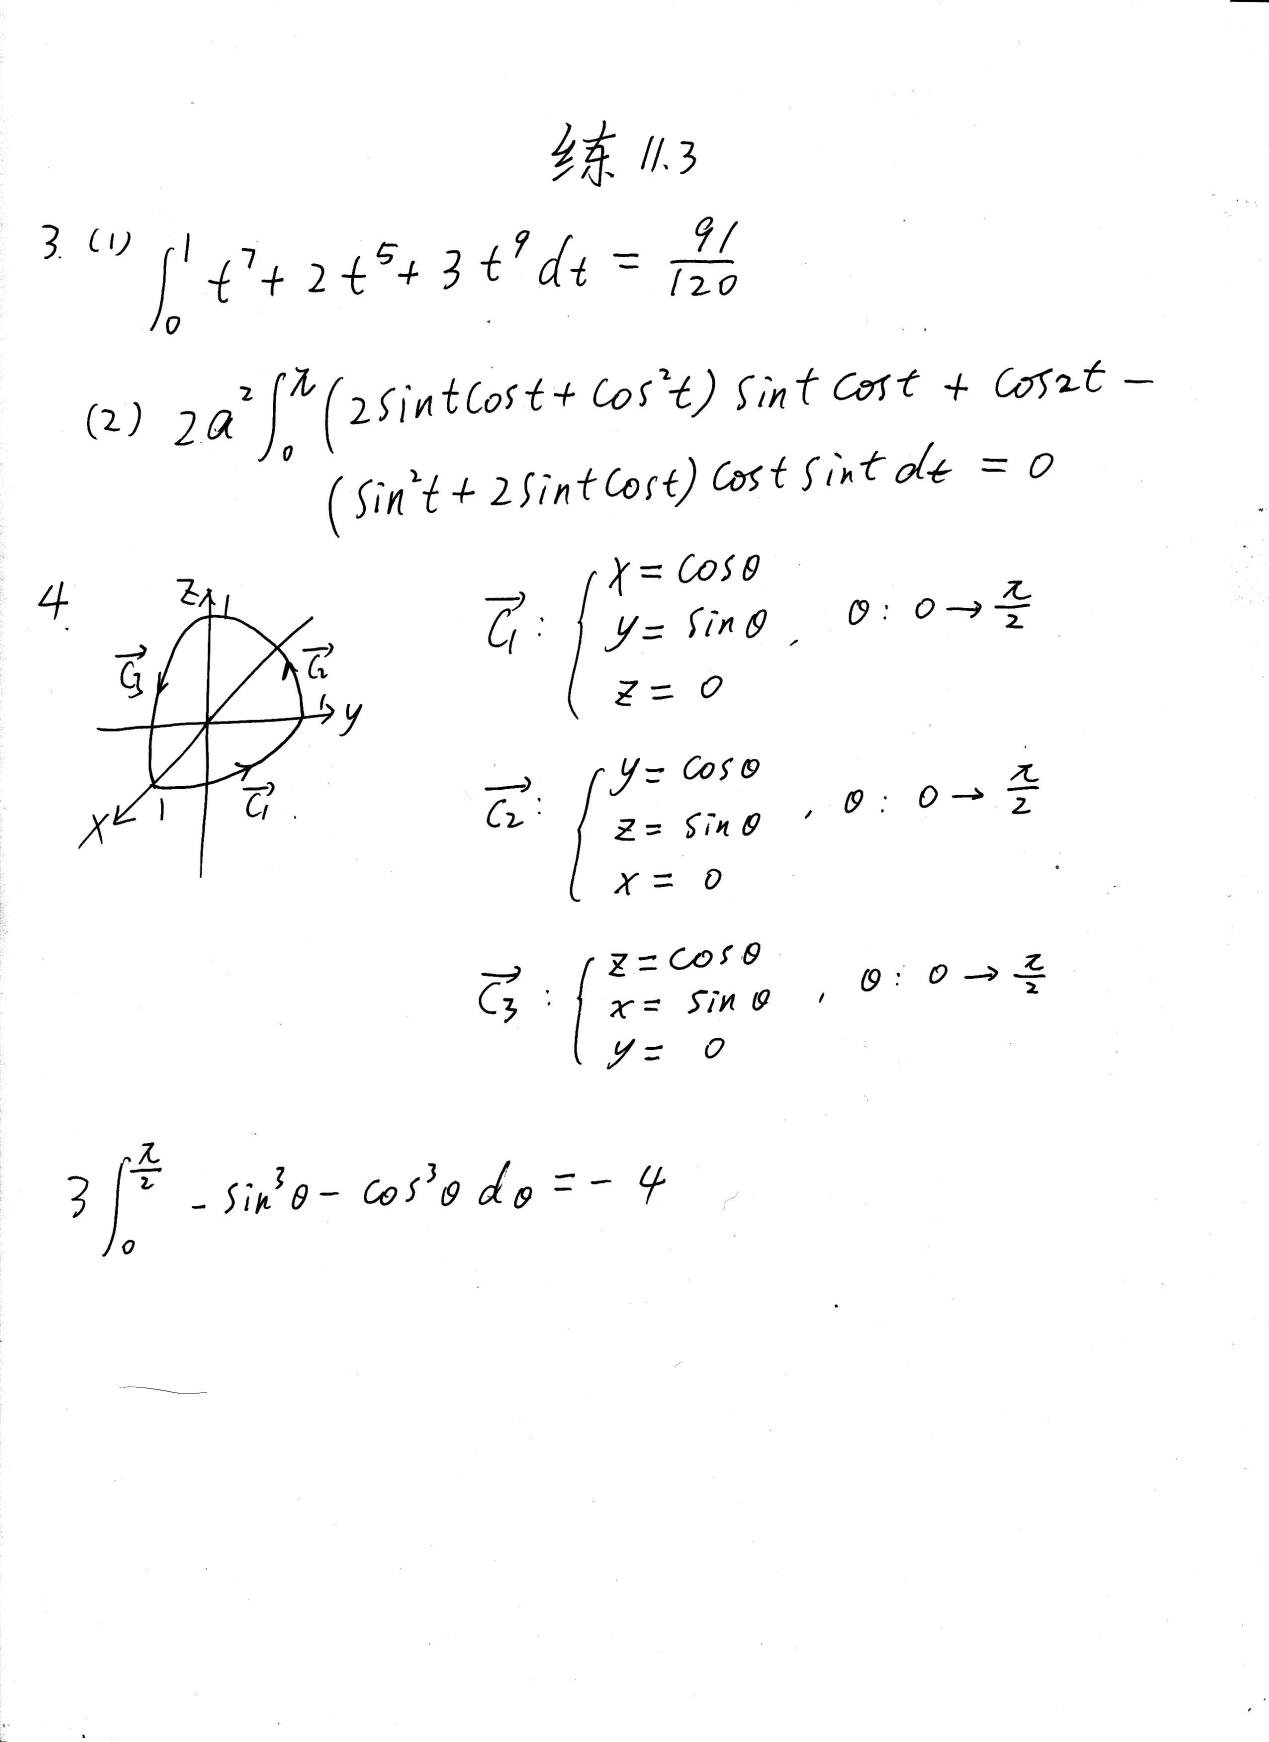 练 11.3
3. (1) ∫₀¹ t⁷ + 2t⁵ + 3t⁹ dt = 91/120
(2) 2a² ∫₀^π (2sintcost + cos²t) sint cost + cos2t −
(sin²t + 2sintcost) cost sint dt = 0
4.
z 1
C₃→
C₂→
1 y
C₁→
x 1
C₁→ : { x = cosθ
y = sinθ , θ : 0 → π/2
z = 0
C₂→ : { y = cosθ
z = sinθ , θ : 0 → π/2
x = 0
C₃→ : { z = cosθ
x = sinθ , θ : 0 → π/2
y = 0
3 ∫₀^(π/2) − sin³θ − cos³θ dθ = − 4